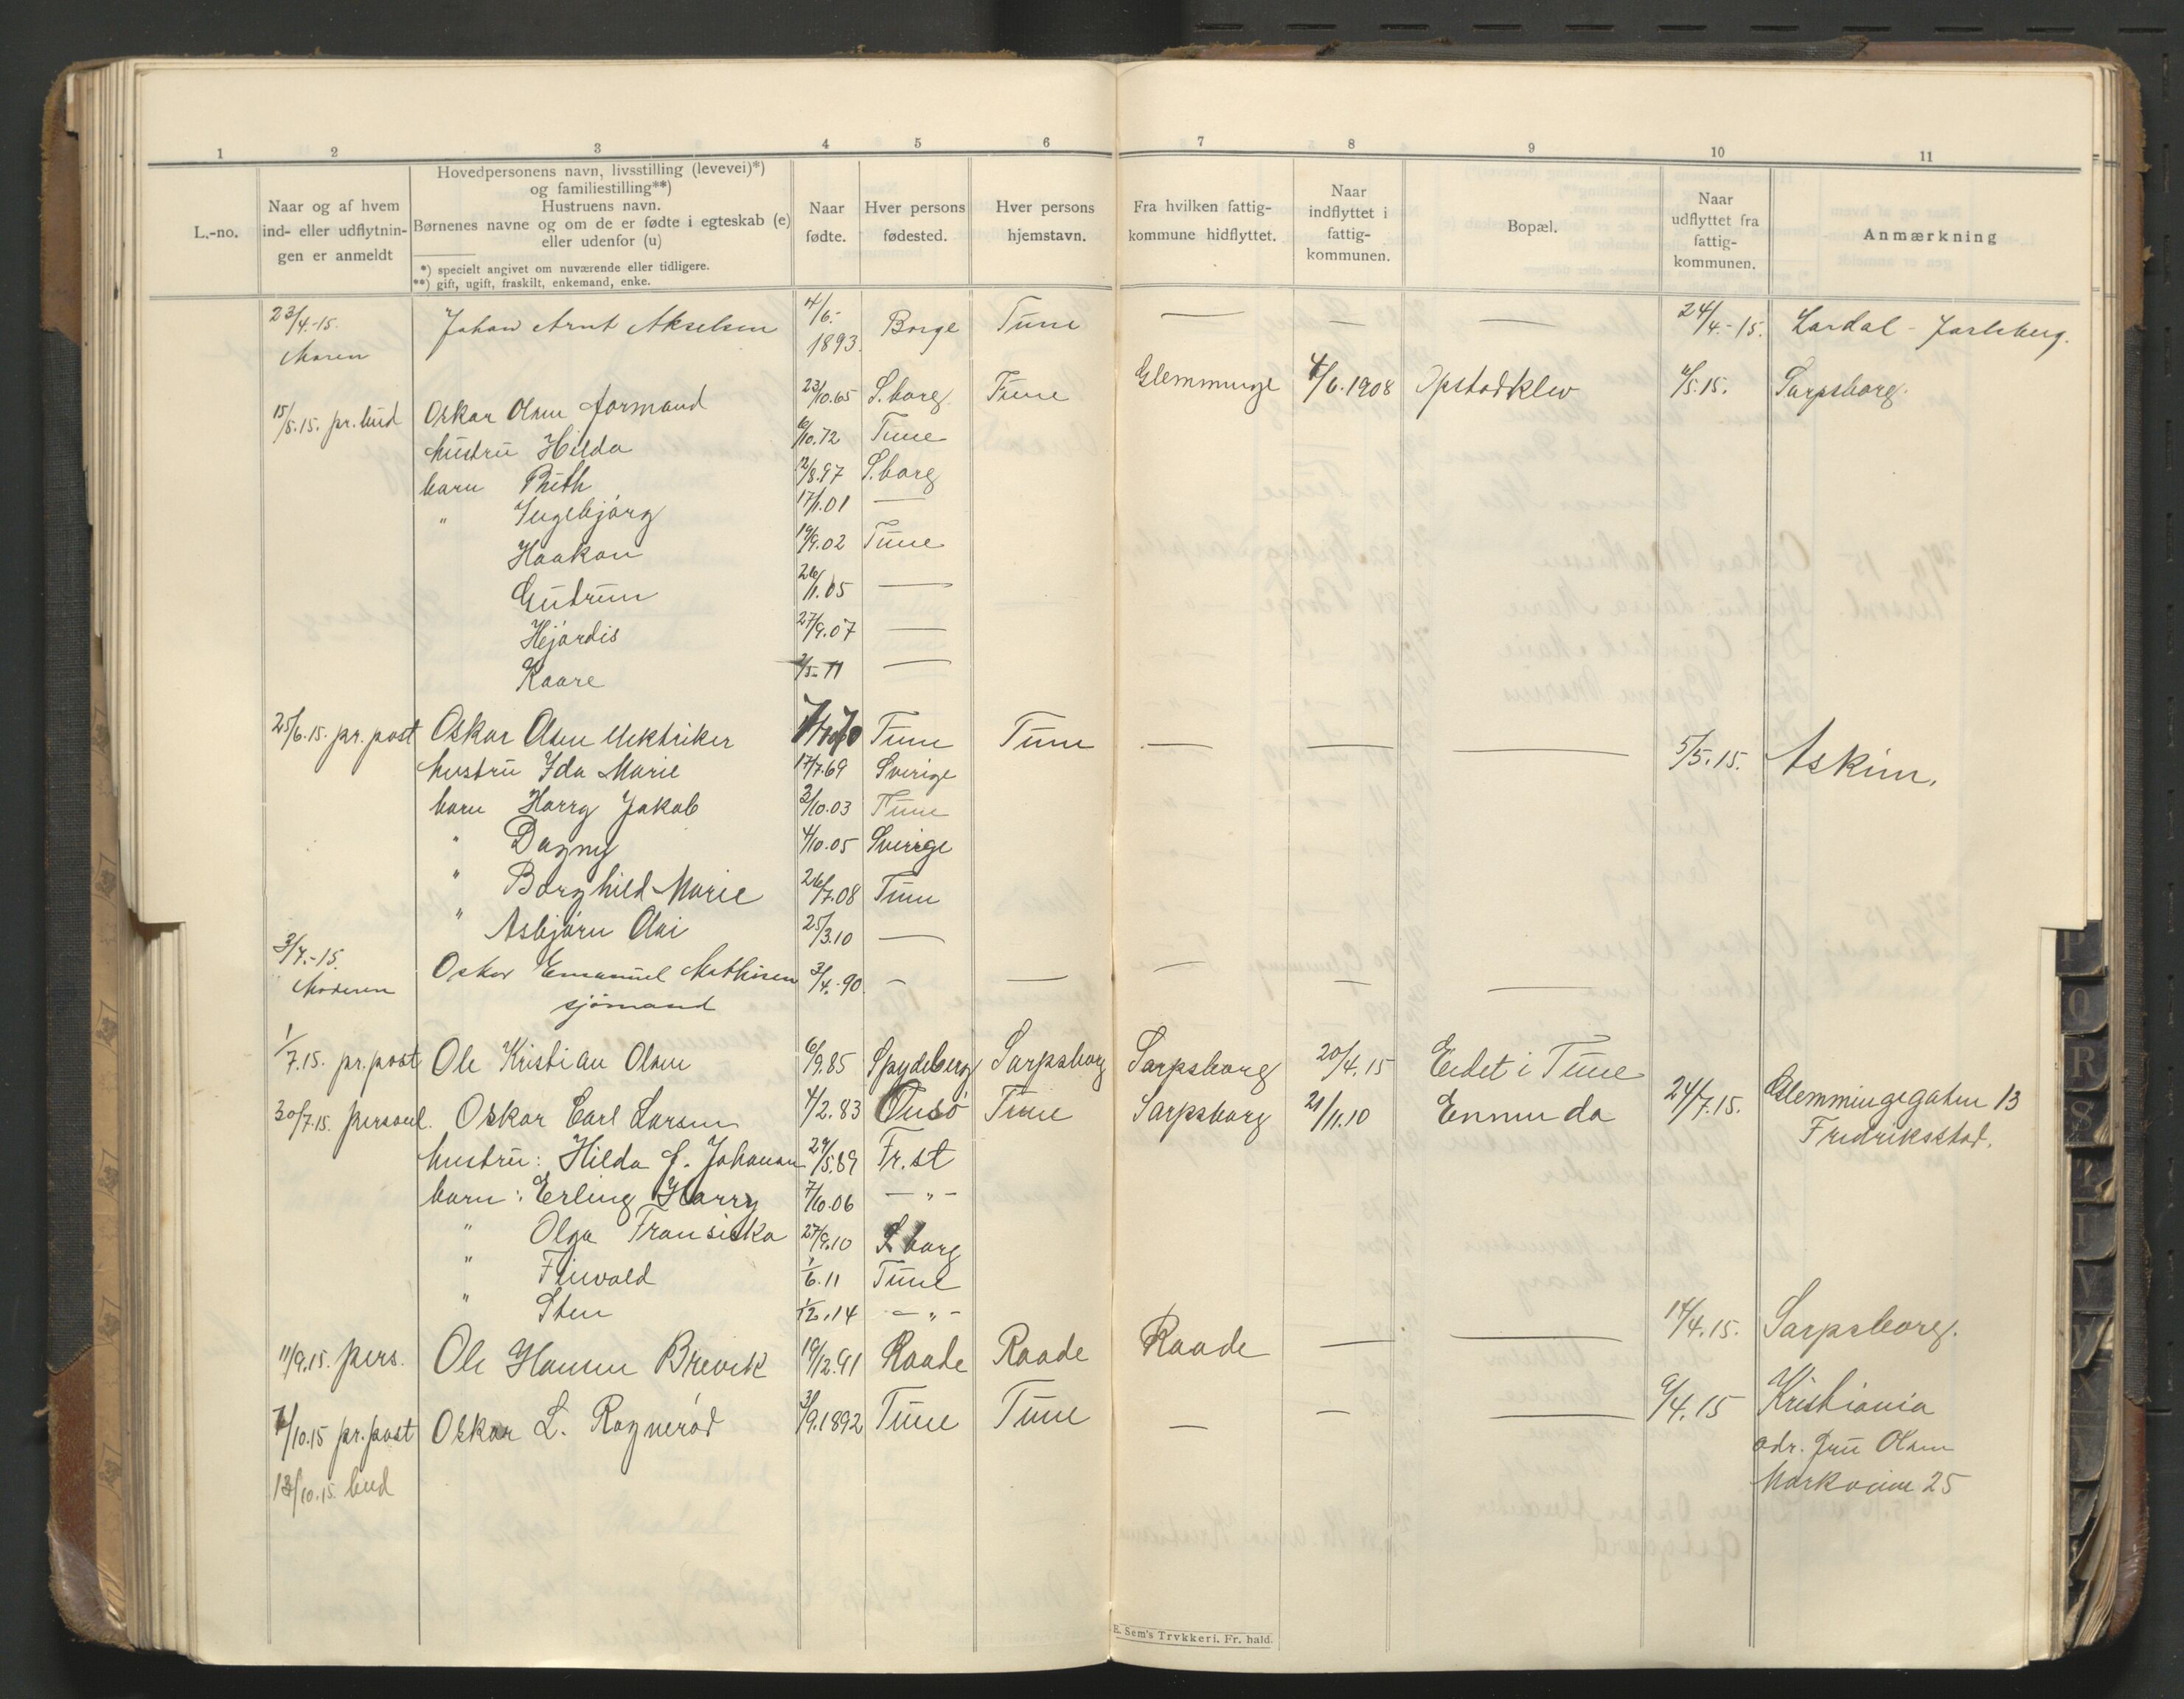 1 2 3 4 5 6 7 8 9 10 11
L.-no.
Naar og af hvem
ind- eller udflytnin-
gen er anmeldt
Hovedpersonens navn, livsstilling (levevei)*)
og familiestilling**)
Hustruens navn.
Børnenes navne og om de er fødte i egteskab (e)
eller udenfor (u)
*) specielt angivet om nuværende eller tidligere.
**) gift, ugift, fraskilt, enkemand, enke.
Naar
fødte.
Hver persons
fødested.
Hver persons
hjemstavn.
Fra hvilken fattig-
kommune hidflyttet.
Naar
indflyttet i
fattig-
kommunen.
Bopæl.
Naar
udflyttet fra
fattig-
kommunen.
Anmærkning
23/4.-15. Johan Arnt Akselsen 4/6.- Borge Tune — — — 24/4.-15. Lardal - Jarlsberg.
Moren 1893.
15/5.15. pr. bud Oskar Olsen formand 23/10.65 S.borg Tune Glemminge 4/6.1908 Opstadklev /5.15. Sarpsborg.
hustru Hilda 6/10.72 Tune
barn Ruth 12/8.97 S.borg
" Ingebjørg 17/1.01 —
Haakon 19/9.02 Tune
Gudrun 26/11.05 —
Hejördis 27/9.07 —
Kaare 2/5-11 —
25/6.15. pr. post Oskar Olsen elektriker Tune Tune — — — 5/5.15. Askim.
hustru Ida Marie 17/7.69 Sverige
barn Harry Jakob 3/10.03 Tune
" Dagny 4/10.05 Sverige
" Borghild Marie 26/7.08 Tune
" Asbjørn Olai 25/3.10 —
3/7.-15. Oskar Emanuel Mathisen 3/4.-90. — — — — —
Moderen sjömand
1/7.15. pr. post Ole Kristian Olsen 6/9.85 Spydeberg Sarpsborg Sarpsborg 20/4.15 Eidet i Tune
30/7.15. personl. Oskar Carl Larsen 4/2.83 Onsö Tune Sarpsborg 21/11.10 Ennerda 24/7.15. Glemmingegaten 13
Fredriksstad.
hustru: Hilda J. Johansen 29/5.89 Fr.st
barn: Erling Harry 7/10.06 — " —
" Olga Fransiska 27/9.10 S.borg
" Finvald 1/6.11 Tune
" Sten 1/2.14 — " —
11/9.15. pers. Ole Hansen Brevik 19/12.91 Raade Raade Raade — — 14/4.15. Sarpsborg.
7/10.15 pr. post Oskar L. Ragneröd 3/9.1892 Tune Tune — — — 9/4.15 Kristiania
adr. Fru Olsen
13/10.15. bud Markveien 25
E. Sem's Trykkeri, Fr. hald.
P
Q
R
S
T
U
V
W
X